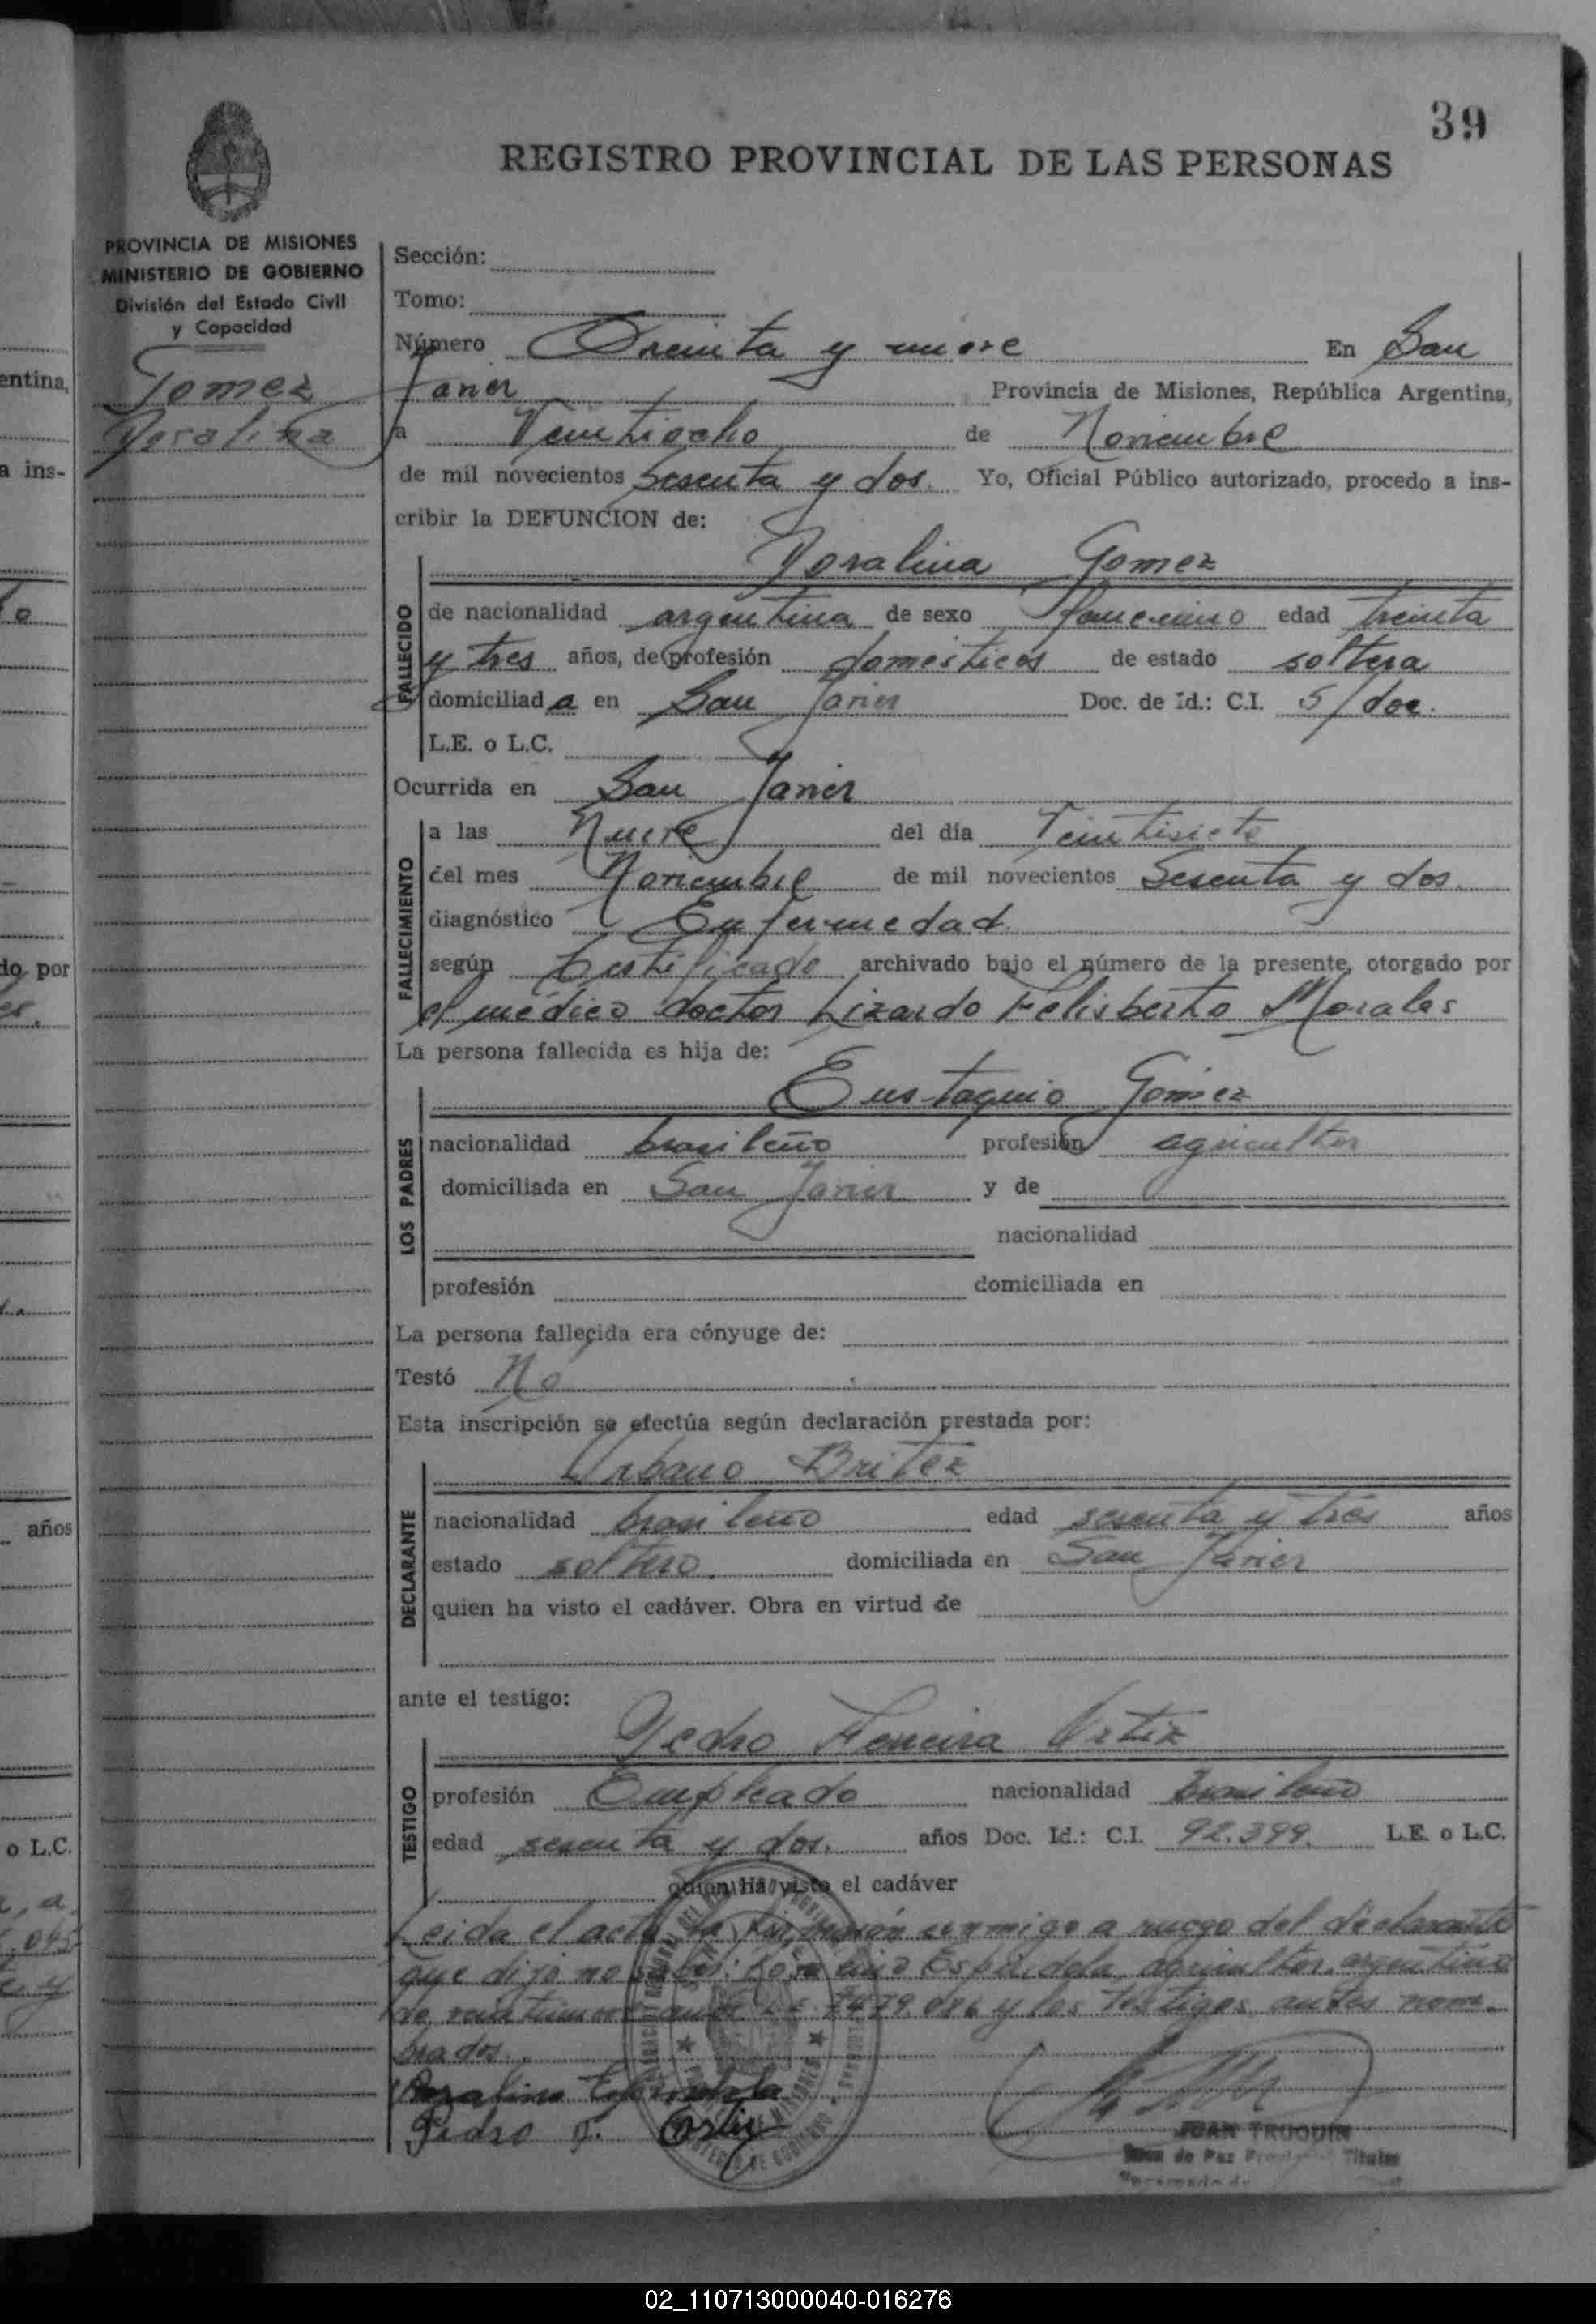 39
REGISTRO PROVINCIAL DE LAS PERSONAS
PROVINCIA DE MISIONES
MINISTERIO DE GOBIERNO
División del Estado Civil
y Capacidad
Gomez
Sección:
Tomo:
Número Treinta y nueve En San
Javier Provincia de Misiones, República Argentina,
a Veintiocho de Noviembre
de mil novecientos Sesenta y dos. Yo, Oficial Público autorizado, procedo a ins-
cribir la DEFUNCION de:
Gomez
FALLECIDO
de nacionalidad argentina de sexo femenino edad treinta
y tres años, de profesión domesticos de estado soltera
domiciliad a en San Javier Doc. de Id.: C.I. S/doc.
L.E. o L.C.
Ocurrida en San Javier
FALLECIMIENTO
a las Nueve del día Veintisiete
del mes Noviembre de mil novecientos Sesenta y dos.
diagnóstico Enfermedad.
según Certificado archivado bajo el número de la presente, otorgado por
el médico doctor Lizardo Felisberto Morales
La persona fallecida es hija de:
Eustaquio Gómez
LOS PADRES
nacionalidad brasileño profesión agricultor
domiciliada en San Javier y de
nacionalidad
profesión domiciliada en
La persona fallecida era cónyuge de:
Testó No
Esta inscripción se efectúa según declaración prestada por:
Urbano Britez
DECLARANTE
nacionalidad brasileño edad sesenta y tres años
estado soltero. domiciliada en San Javier
quien ha visto el cadáver. Obra en virtud de
ante el testigo:
Pedro Ferreira Ortiz
TESTIGO
profesión Empleado nacionalidad brasileño
edad sesenta y dos. años Doc. Id.: C.I. 92.399. L.E. o L.C.
quien ha visto el cadáver
Leida el acta la conmigo a ruego del declarante
que dijo no Espindola, agricultor, argentino
de y los testigos antes nom-
brados.
Pedro F. Ortiz
JUAN TRUQUIN
de Paz Titular
entina,
a ins-
do por
años
o L.C.
02_110713000040-016276